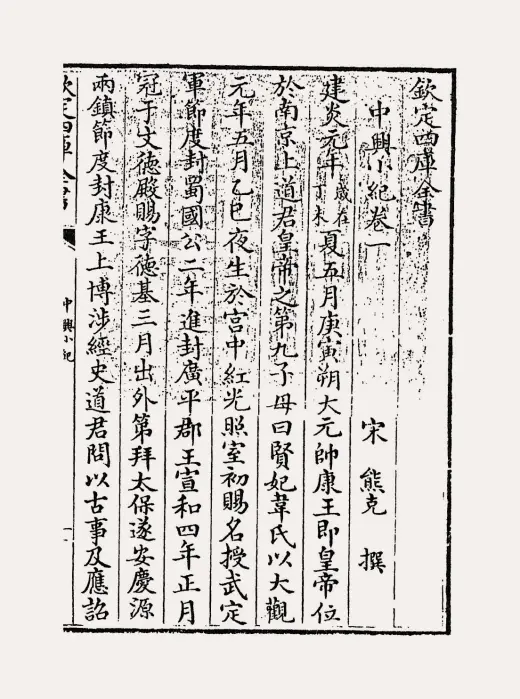 欽定四庫全書
中興小紀卷一
宋 熊克 撰
建炎元年歲在丁未夏五月庚寅朔大元帥康王即皇帝位
於南京上道君皇帝之第九子母曰賢妃韋氏以大觀
元年五月乙巳夜生於宮中紅光照室初賜名授武定
軍節度封蜀國公二年進封廣平郡王宣和四年正月
冠于文德殿賜字德基三月出外第拜太保遂安慶源
兩鎮節度封康王上博涉經史道君問以古事及應詔
欽定四庫全書
中興小紀